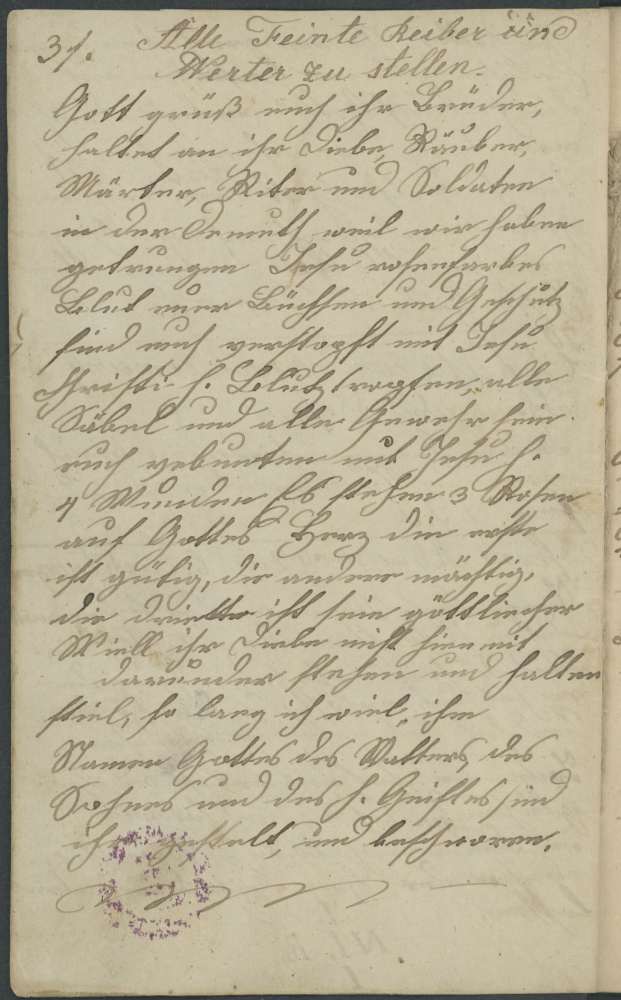 31. Alle Feinte Reiber und
Werter zu stellen.
Gott grüß euch ihr Brüder,
haltet an ihr Diebe, Räuber,
Märter, Riter und Soldaten
in der Demuth weil wir haben
getrungen Jesu rosenfarbes
Blut euer Büchsen und Geschütz
sind euch verstopft mit Jesu
Christi h. Blutztropfen, alle
Säbel und alle Gewehr sein
euch vebunten mit Jesu h.
4 Wunden Es stehen 3 Rosen
auf Gottes Herz die erste
ist gütig, die andere mächtig,
die drietto ist sein göttliecher
Wiell ihr Diebe müst hiemit
darunder stehen und halten
stiel, so lang ich wiel, ihm
Namen Gottes des Vatters, des
Sohnes und des h. Geistes sind
ihr gestelt, und beschworen.